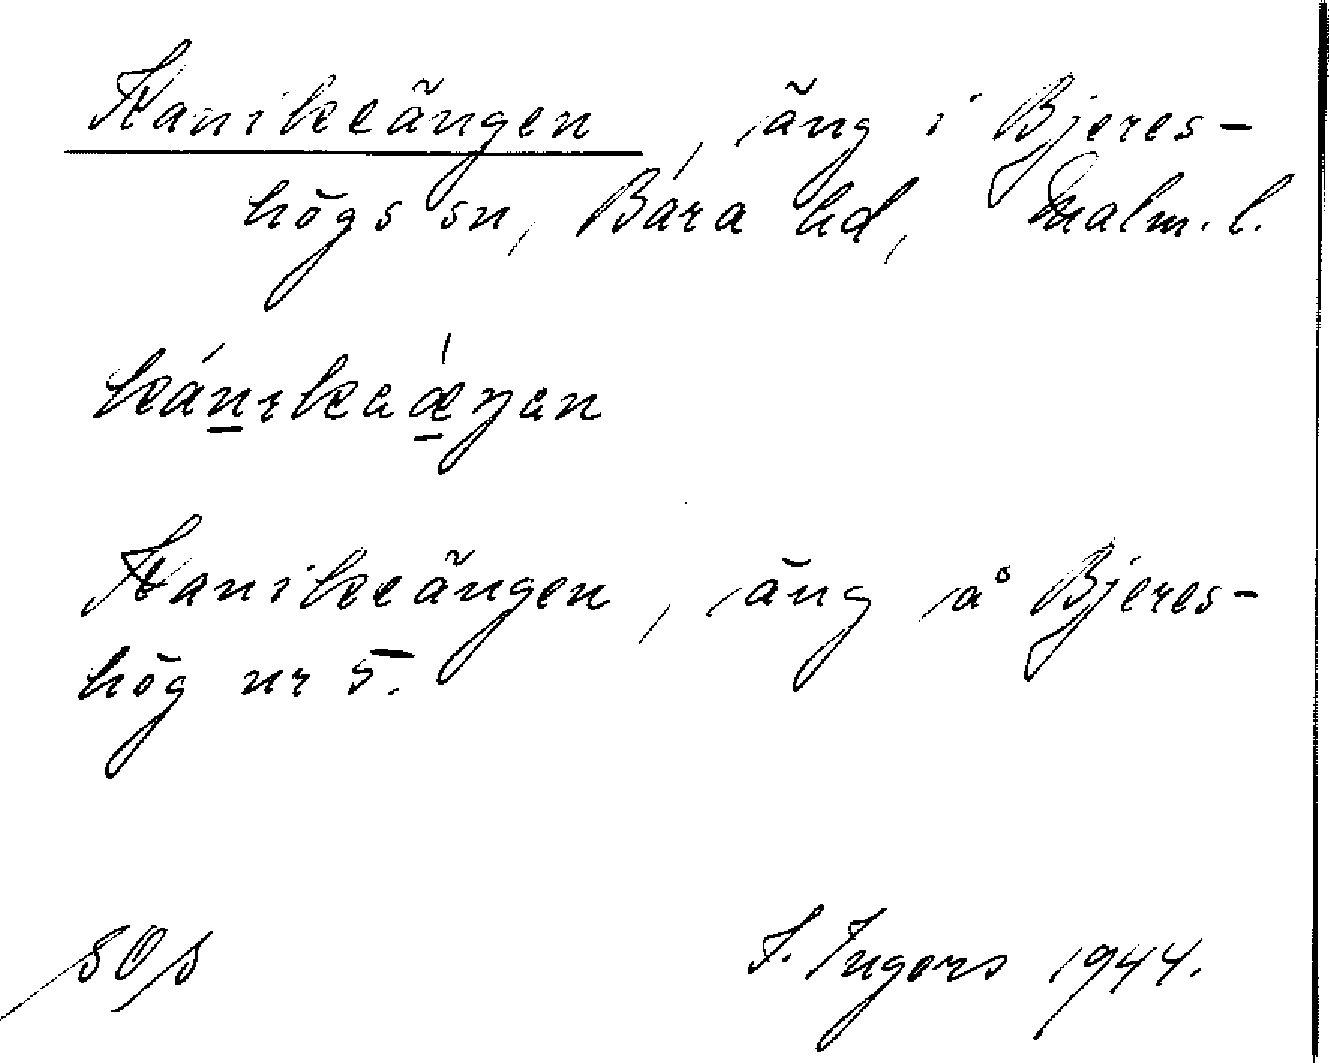 Kanikeängen, äng i Bjeres-
högs sn, Bara hd, Malm. l.
Kanikeängen, äng å Bjeres-
hög nr 5.
I. Ingers 1944.